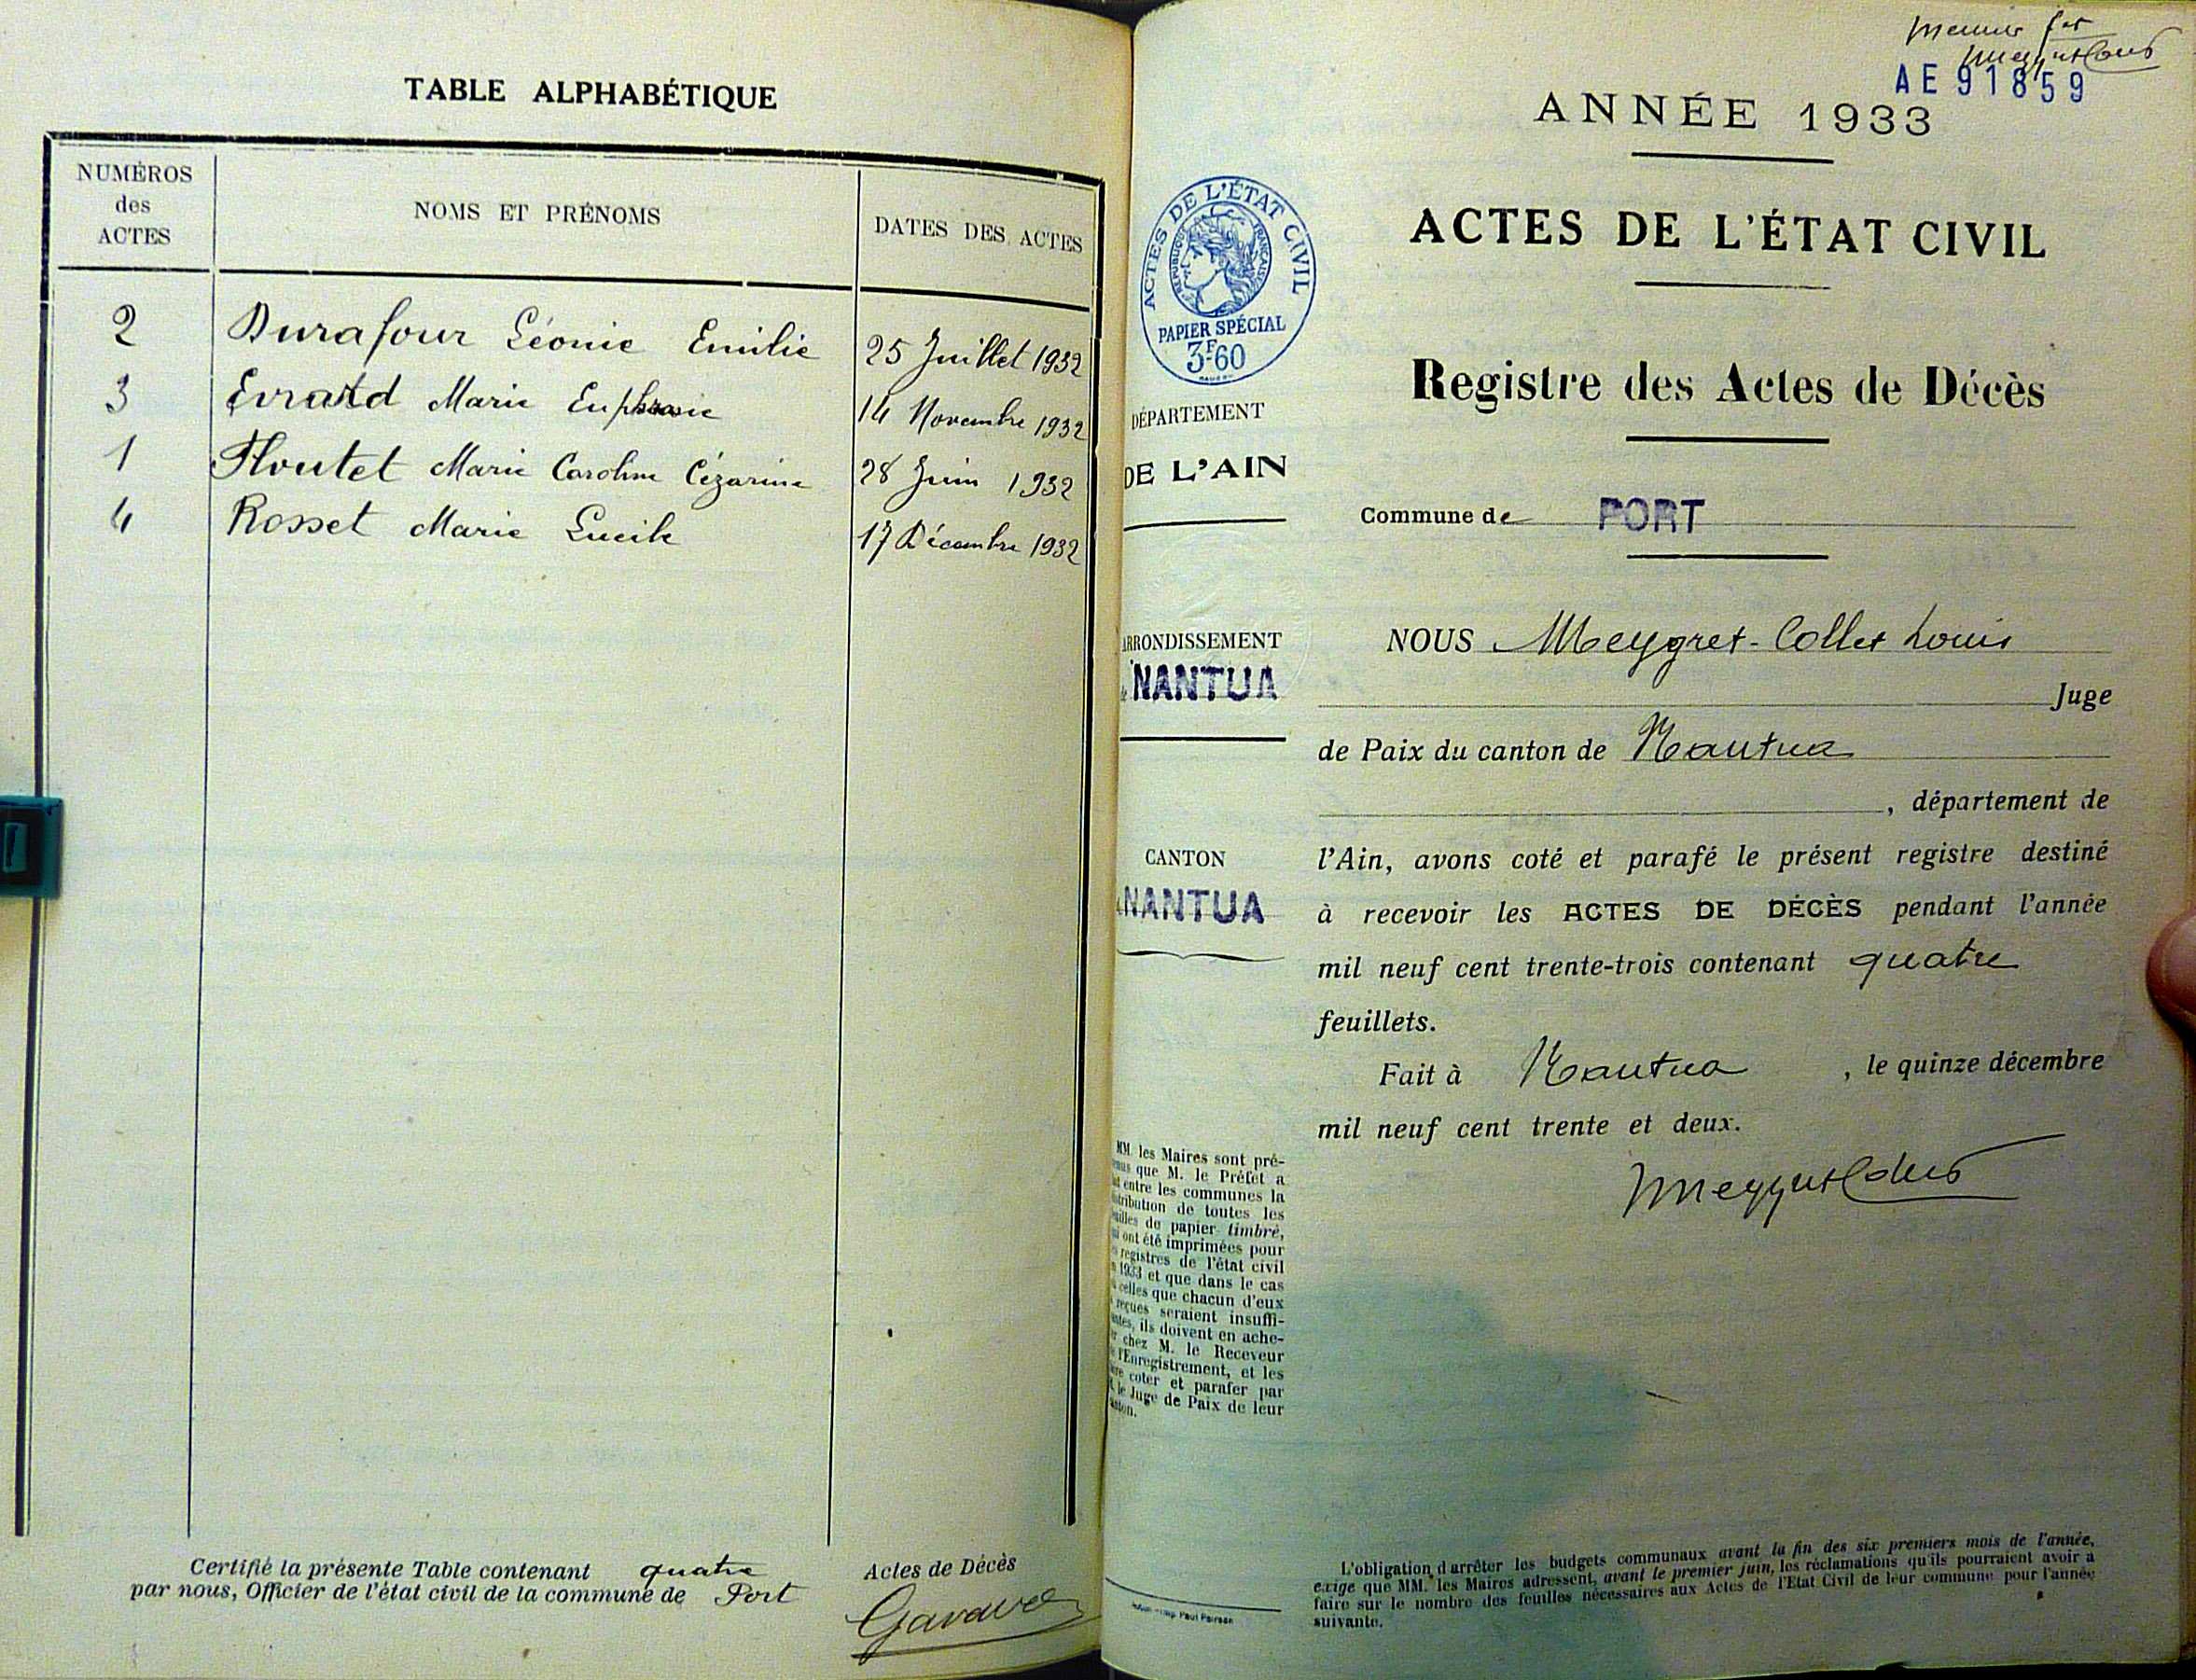 TABLE ALPHABÉTIQUE
NUMÉROS
des
ACTES
NOMS ET PRÉNOMS
DATES DES ACTES
2 Durafour Léonie Emilie 25 Juillet 1932
3 Evrard Marie Euphrasie 14 Novembre 1932
1 Floutet Marie Caroline Cézarine 28 Juin 1932
4 Rosset Marie Lucile 17 Décembre 1932
Certifié la présente Table contenant quatre Actes de Décès
par nous, Officier de l'état civil de la commune de Port
AE 91859
ANNÉE 1933
ACTES DE L'ÉTAT CIVIL
RÉPUBLIQUE FRANÇAISE
PAPIER SPÉCIAL
3F60
DÉPARTEMENT
DE L'AIN
ARRONDISSEMENT
NANTUA
CANTON
NANTUA
MM. les Maires sont pré-
que M. le Préfet a
entre les communes la
de toutes les
de papier timbré,
ont été imprimées pour
registres de l'état civil
1933 et que dans le cas
celles que chacun d'eux
reçues seraient insuffi-
ils doivent en ache-
chez M. le Receveur
l'Enregistrement, et les
coter et parafer par
le Juge de Paix de leur
ACTES DE L'ÉTAT CIVIL
Registre des Actes de Décès
Commune de PORT
NOUS Meygret-Collet Louis
Juge
de Paix du canton de Nantua
, département de
l'Ain, avons coté et parafé le présent registre destiné
à recevoir les ACTES DE DÉCÈS pendant l'année
mil neuf cent trente-trois contenant quatre
feuillets.
Fait à Nantua , le quinze décembre
mil neuf cent trente et deux.
L'obligation d'arrêter les budgets communaux avant la fin des six premiers mois de l'année,
exige que MM. les Maires adressent, avant le premier juin, les réclamations qu'ils pourraient avoir à
faire sur le nombre des feuilles nécessaires aux Actes de l'Etat Civil de leur commune pour l'année
suivante.